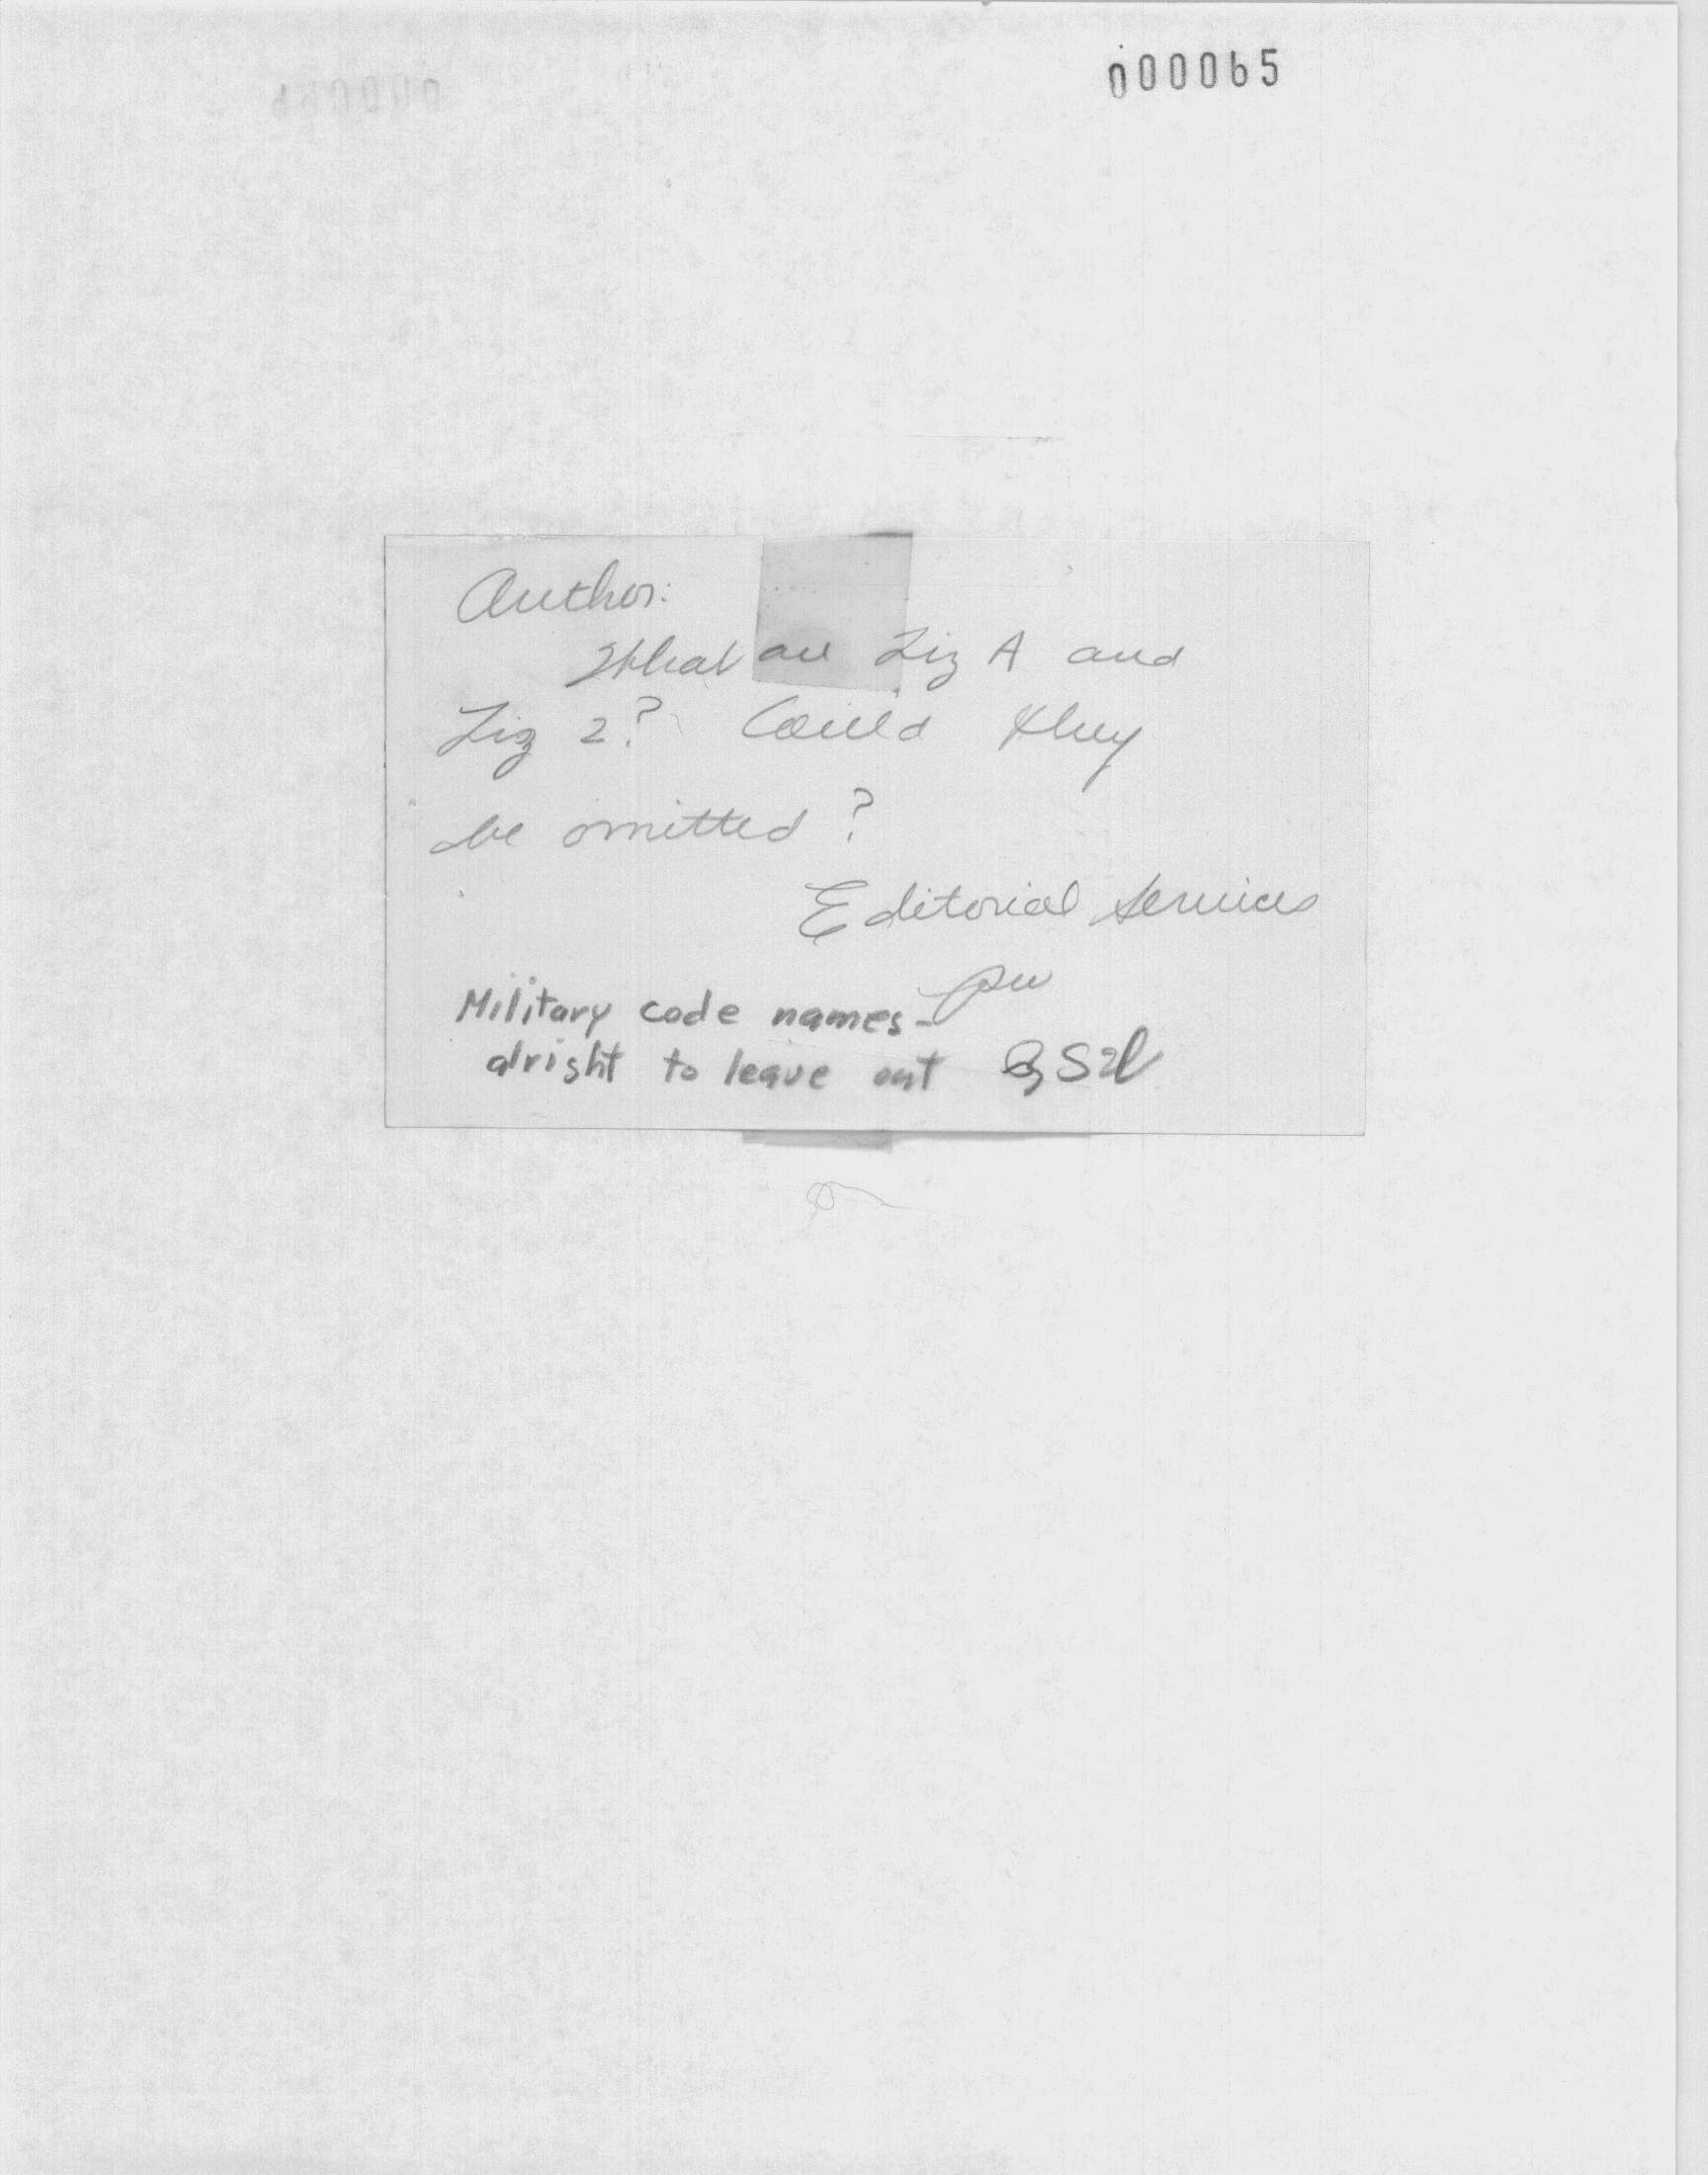 000065
Author:
What are Liz A and
Liz 2? Could they
be omitted?
Editorial Services
Military code names-
alright to leave out